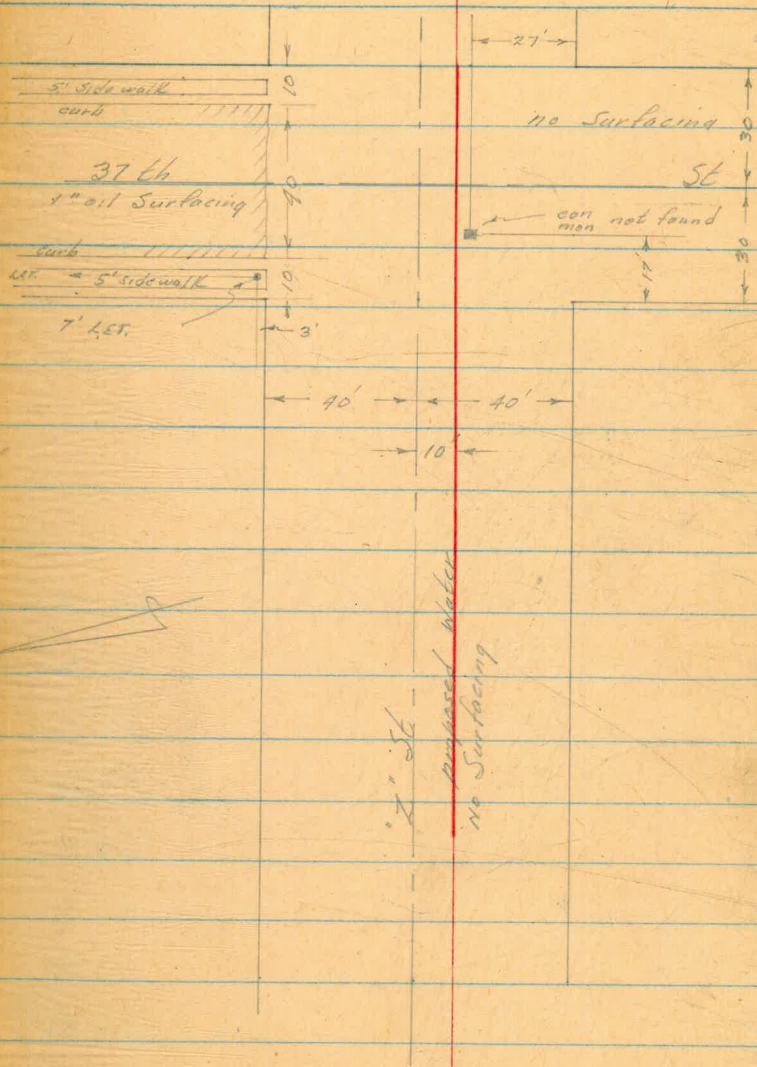 27'
5' Side walk
10
curb
no Surfacing
30
37 th
St
1" oil Surfacing
40
con
mon not found
curb
30
L&T. 5' sidewalk
10
17'
7' L&T.
3'
40'
40'
10'
proposed Water
No Surfacing
"Z" St.